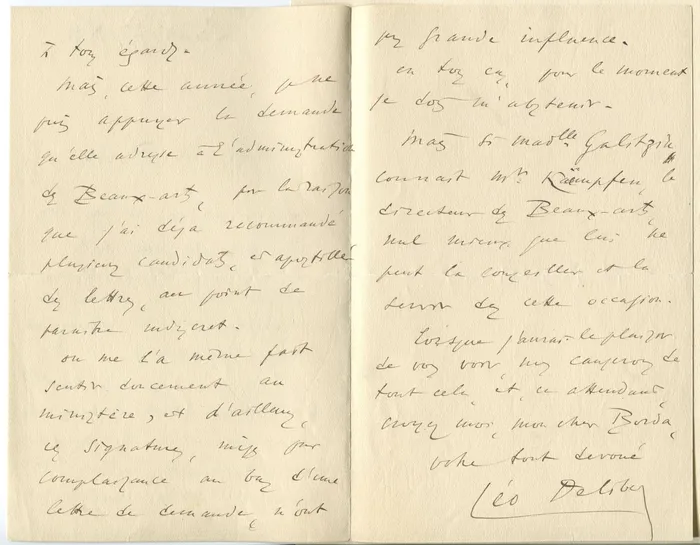 à son égard.
Mais, cette année, je ne
puis appuyer la demande
qu'elle adresse à l'administration
des Beaux-arts, par la raison
que j'ai déja recommandé
plusieurs candidats, et apostillé
des lettres, au point de
paraître indiscret.
on me l'a même fait
sentir doucement au
ministère, et d'ailleurs,
ces signatures, mises par
complaisance au bas d'une
lettre de demande, n'ont
pas grande influence.
en tous cas, pour le moment
je dois m'abstenir.
Mais si Madlle Galitzin
connaît Mr. Kaëmpfen, le
directeur des Beaux-arts,
nul mieux que lui ne
peut la conseiller et la
servir dans cette occasion.
Lorsque j'aurai le plaisir
de vous voir, nous causerons de
tout cela, et, en attendant,
croyez moi, mon cher Borda,
votre tout dévoué
Léo Delibes